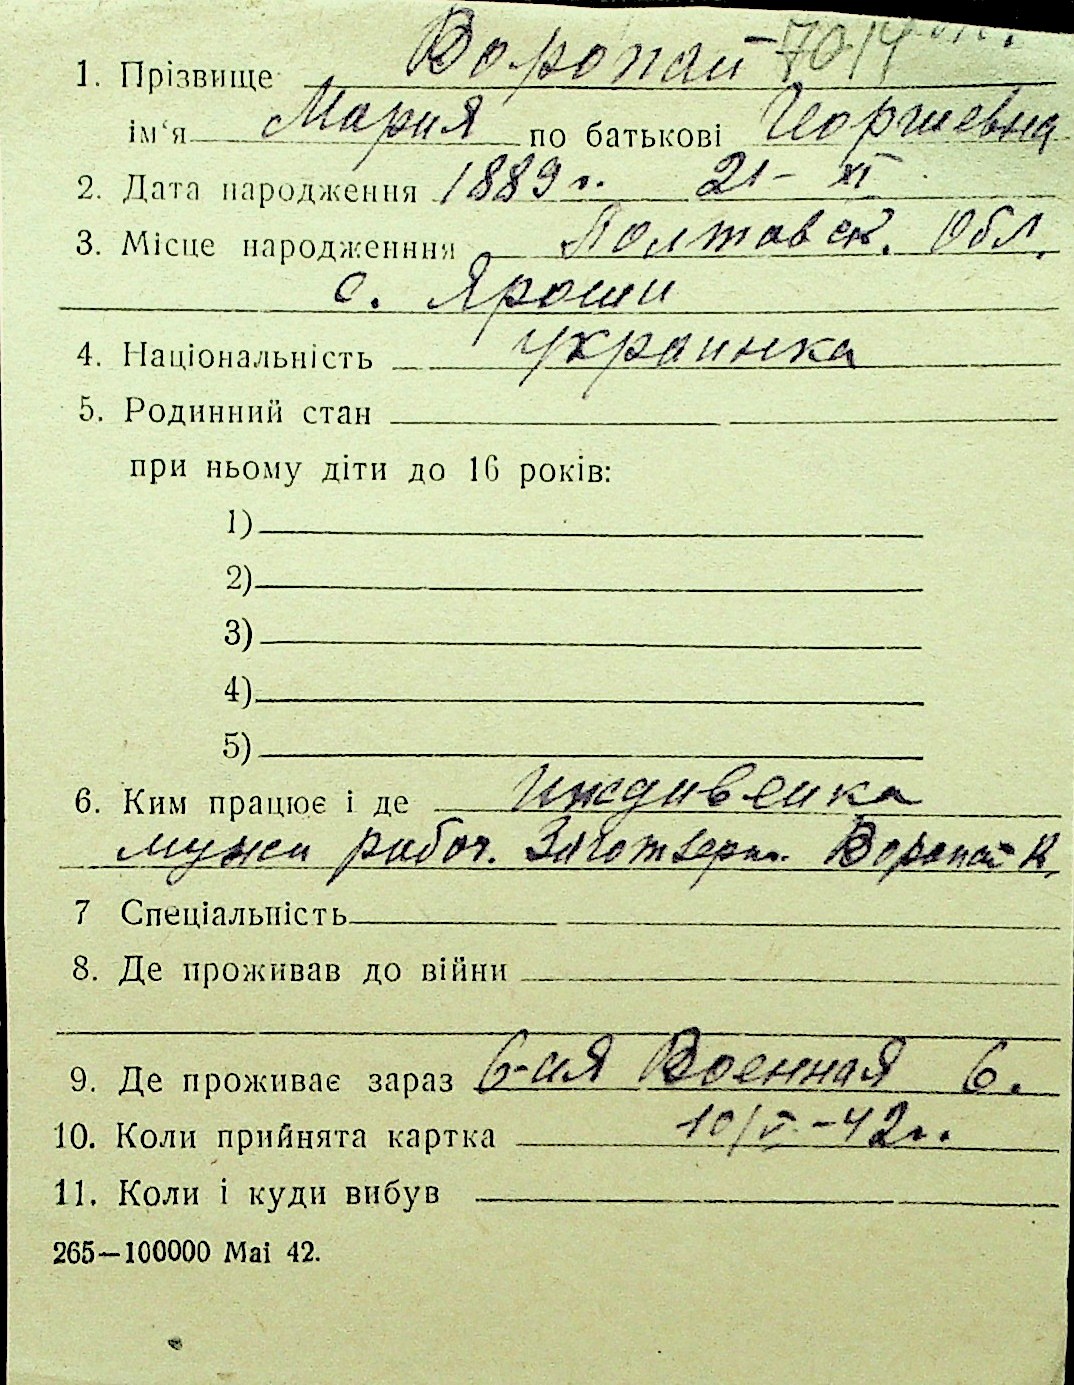 1. Прізвище Воропай 7014
ім‘я Мария по батькові Георгиевна
2. Дата народження 1889 г. 21 – XI
3. Місце народженння Полтавск. Обл.
с. Яроши
4. Національність украинка
5. Родинний стан
при ньому діти до 16 років:
1)
2)
3)
4)
5)
6. Ким працює і де Иждивенка
мужа рабоч. Заготзерн. Воропай К.
7 Спеціальність
8. Де проживав до війни
9. Де проживає зараз 6-ая Военная 6.
10. Коли прийнята картка 10/V – 42 г.
11. Коли і куди вибув
265—100000 Mai 42.